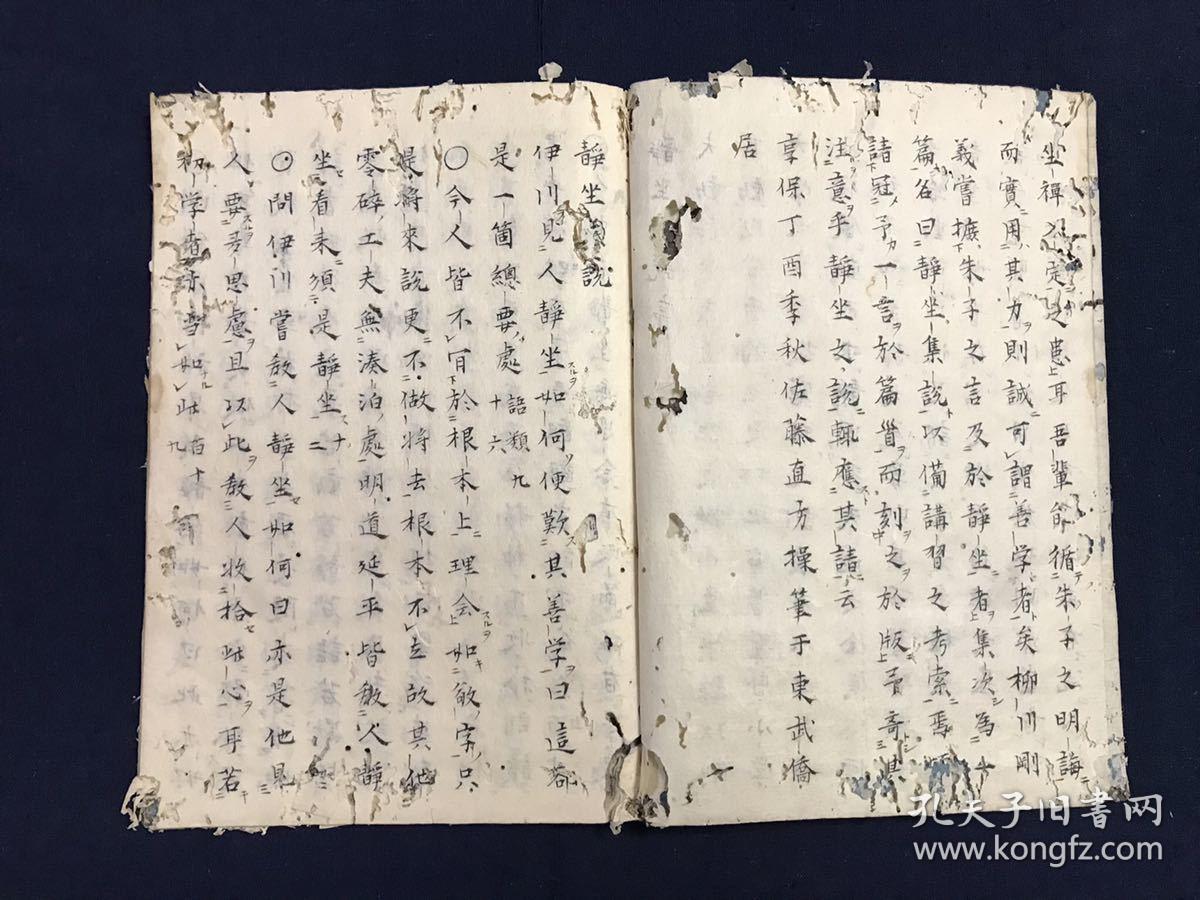 坐禅入定之患上耳吾輩能循朱子之明誨
而實用其力則誠可謂善学者矣柳川剛
義嘗摭朱子之言及於靜坐者集次為一
篇名曰靜坐集説以備講習之考索焉
請冠予一言於篇首而刻之於版予奇其
注意乎靜坐之説輒應其請云
享保丁酉季秋佐藤直方操筆于東武僑
居
靜坐集説
伊川見人靜坐如何便歎其善学曰這却
是一箇總要處 語類九十六
〇今人皆不肯於根本上理会如敬字只
是將來説更不做将去根本不立故其他
零碎工夫無湊泊處明道延平皆教人靜
坐看来須是靜坐 十二
〇問伊川嘗教人靜坐如何曰亦是他見
人要多思慮且以此教人收拾此心耳若
初学者亦當如此 百十九
孔夫子旧书网
www.kongfz.com